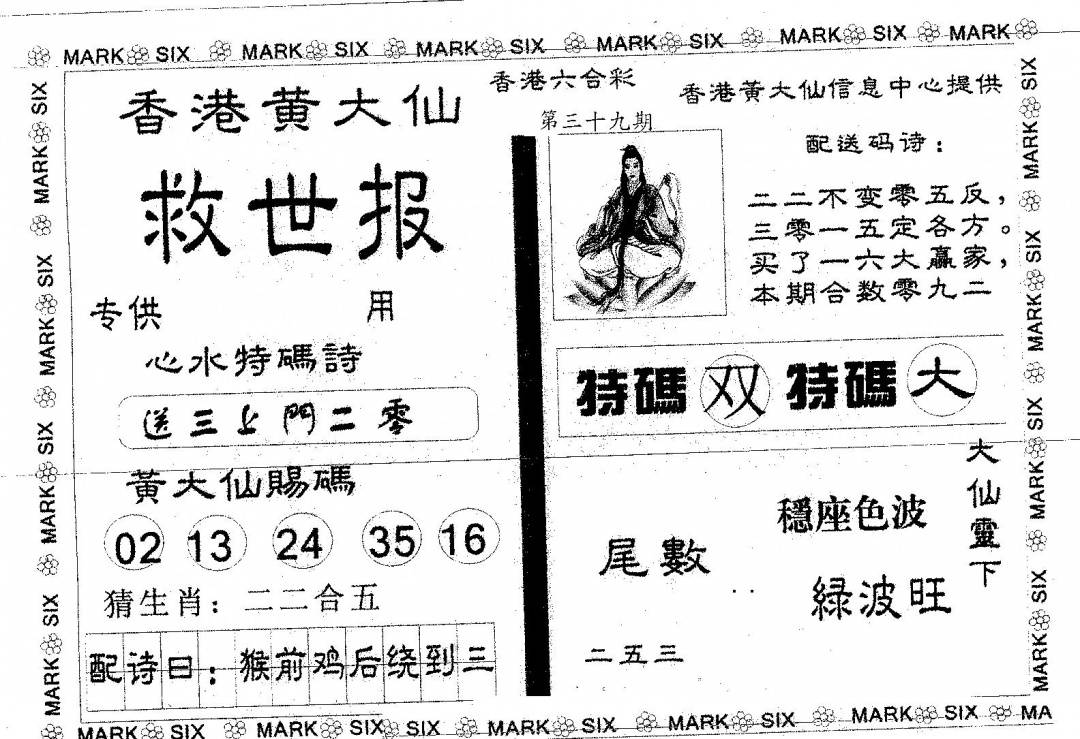 MARK SIX MARK SIX MARK SIX MARK SIX MARK SIX MARK
香港六合彩
香港黄大仙
救世报
专供 用
心水特碼詩
送三上門二零
黃大仙賜碼
02 13 24 35 16
猜生肖：二二合五
配诗曰：猴前鸡后绕到三
第三十九期
香港黃大仙信息中心提供
配送码诗：
二二不变零五反，
三零一五定各方。
买了一六大赢家，
本期合数零九二
特碼 双 特碼 大
大仙靈下
穩座色波
緑波旺
尾數
二五三
MARK SIX MARK SIX MARK SIX MARK SIX
MARK SIX MARK SIX MARK SIX MARK SIX
MARK SIX MARK SIX SIX MARK SIX MARK SIX MARK SIX MA